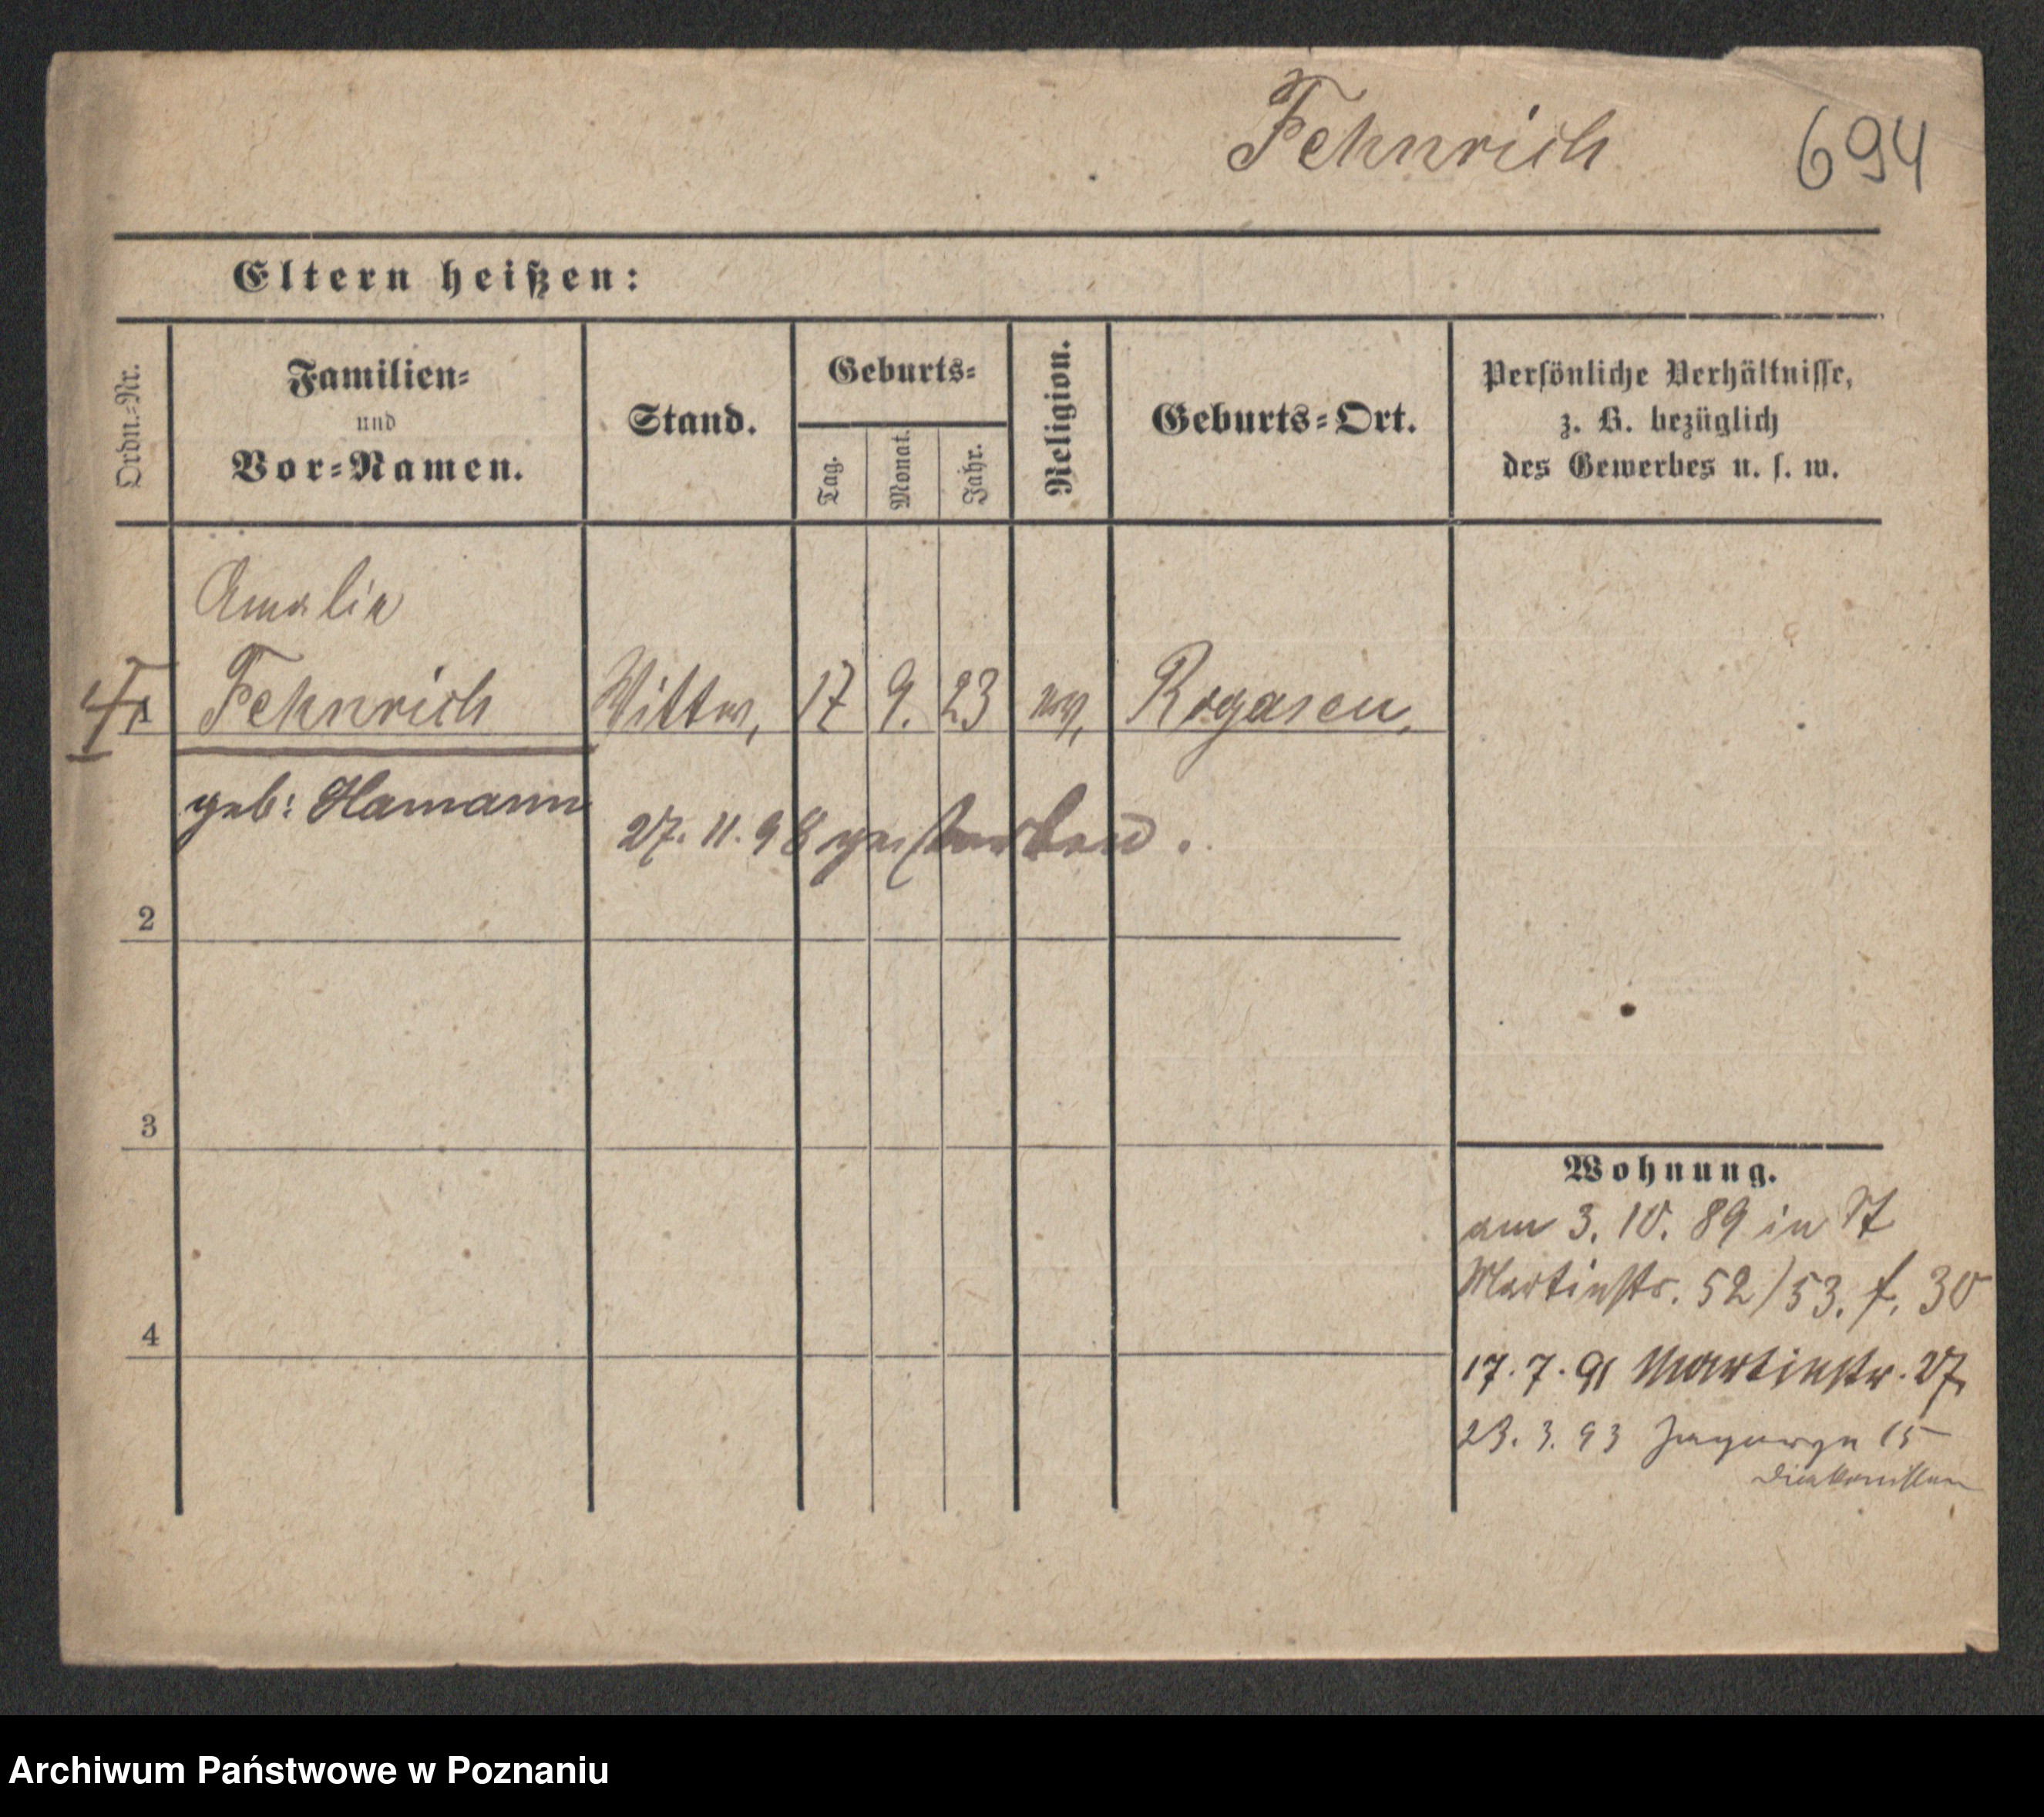 Fehnrich 694
Eltern heißen:
Ordn.-Nr.
Familien-
und
Vor-Namen.
Stand.
Geburts-
Tag.
Monat.
Jahr.
Religion.
Geburts-Ort.
Persönliche Verhältnisse,
z. B. bezüglich
des Gewerbes u. s. w.
Amalie
1 Fehnrich Wittw, 17 9. 23 Rogasen,
geb: Hamann
27. 11. 98 gestorben.
2
3
4
Wohnung.
am 3. 10. 89 in St
Martinstr. 52/53. f. 30
17. 7. 91 Martinstr. 27,
23. 3. 93 15
Diakonissen
Archiwum Państwowe w Poznaniu